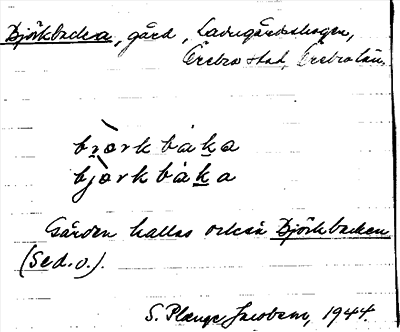 Björkbacka, gård, Ladugårdsskogen,
Örebro stad, Örebro län
bjærkbaka
bjærkbaka
Gården kallas också Björkbacken
(se d.o.).
S. Plenge Jacobsen, 1944.